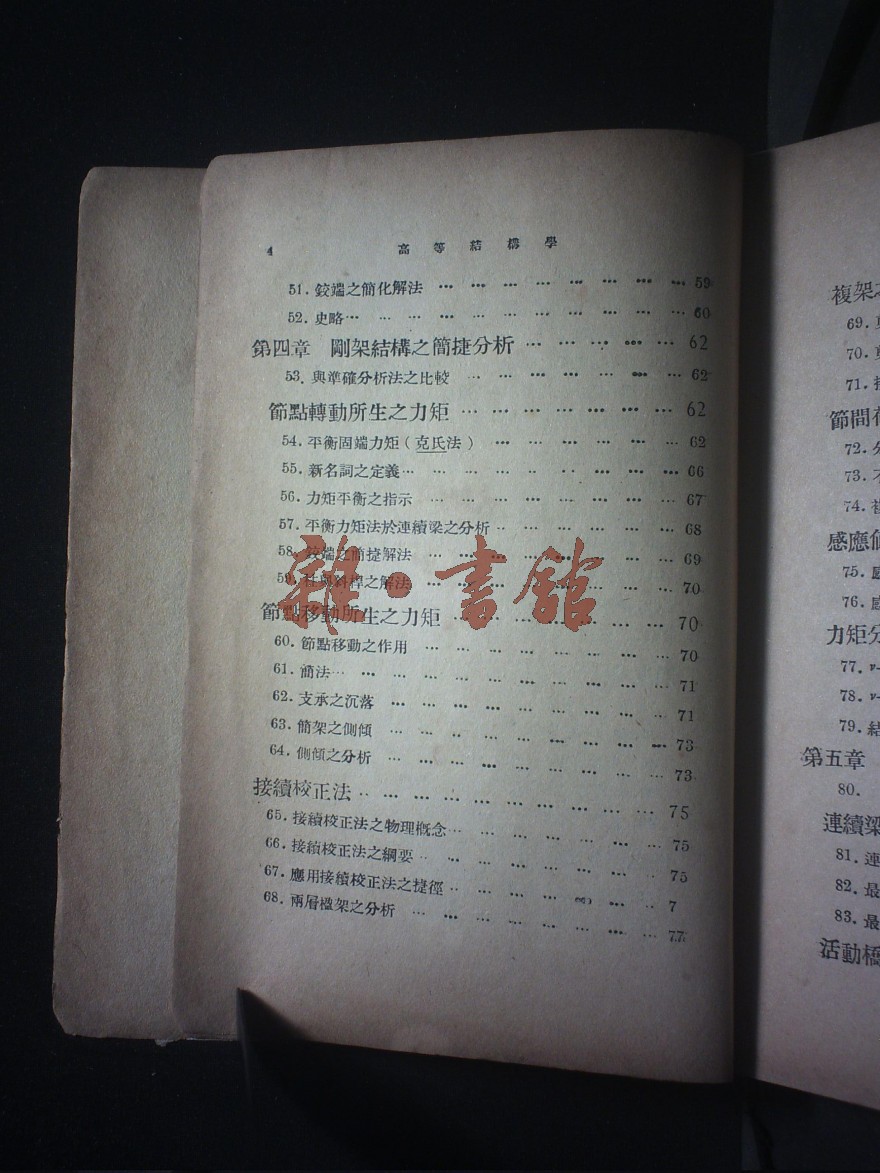 4 高等結構學
51. 鉸端之簡化解法 … … … … … … … … … 59
52. 史略… … … … … … … … … … … 60
第四章 剛架結構之簡捷分析 … … … … … 62
53. 與準確分析法之比較 … … … … … … … 62
節點轉動所生之力矩 … … … … … … … 62
54. 平衡固端力矩(克氏法) … … … … … … 62
55. 新名詞之定義… … … … … … … … … 66
56. 力矩平衡之指示 … … … … … … … … 67
57. 平衡力矩法於連續梁之分析 … … … … … … 68
58. 鉸端之簡捷解法 … … … … … … … … 69
59. 柱與斜桿之解法 … … … … … … … … 70
節點移動所生之力矩 … … … … … … … 70
60. 節點移動之作用 … … … … … … … … 70
61. 簡法… … … … … … … … … … … 71
62. 支承之沉落 … … … … … … … … … 71
63. 簡架之側傾 … … … … … … … … … 73
64. 側傾之分析 … … … … … … … … … 73
接續校正法 … … … … … … … … … … 75
65. 接續校正法之物理概念… … … … … … … 75
66. 接續校正法之綱要 … … … … … … … … 75
67. 應用接續校正法之捷徑 … … … … … … … 7
68. 兩層樞架之分析 … … … … … … … … 77
雜·書館
複架
69.
70.
71.
節間
72.
73.
74. 複
感應
75. 感
76. 感
力矩分
77. ν-
78. ν-
79. 結
第五章
80.
連續梁
81. 連
82. 最
83. 最
活動橋